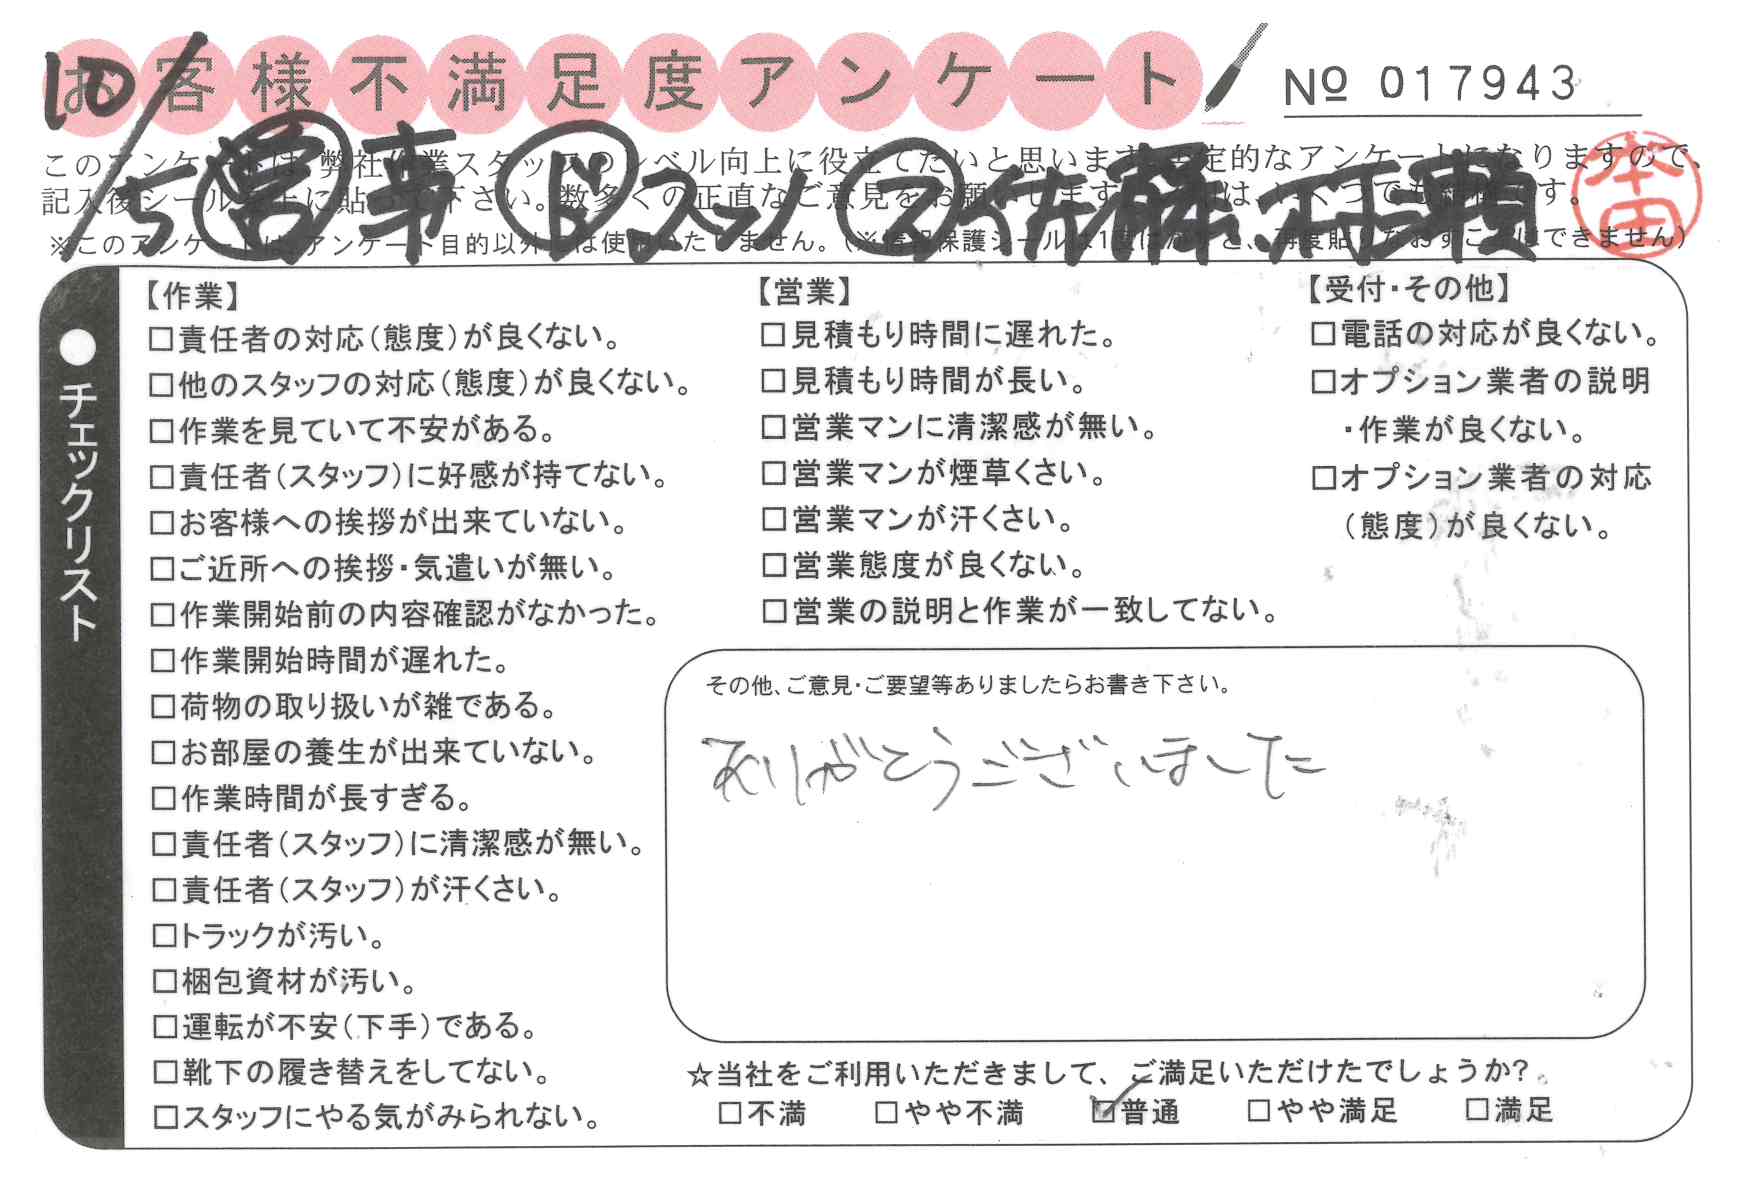 お客様不満足度アンケート
№ 017943
10/5 営 事 ド スコ ス 佐藤、河瀬
本田
このアンケートは、弊社作業スタッフのレベル向上に役立てたいと思います。定的なアンケートになりますので、
記入後シールを上に貼って下さい。数多くの正直なご意見をお願いします。は、いくつでも結構です。
※このアンケートは、アンケート目的以外には使用いたしません。(※情報保護シールは1度はがすと、再度貼りなおすことはできません)
●チェックリスト
【作業】
□責任者の対応(態度)が良くない。
□他のスタッフの対応(態度)が良くない。
□作業を見ていて不安がある。
□責任者(スタッフ)に好感が持てない。
□お客様への挨拶が出来ていない。
□ご近所への挨拶・気遣いが無い。
□作業開始前の内容確認がなかった。
□作業開始時間が遅れた。
□荷物の取り扱いが雑である。
□お部屋の養生が出来ていない。
□作業時間が長すぎる。
□責任者(スタッフ)に清潔感が無い。
□責任者(スタッフ)が汗くさい。
□トラックが汚い。
□梱包資材が汚い。
□運転が不安(下手)である。
□靴下の履き替えをしてない。
□スタッフにやる気がみられない。
【営業】
□見積もり時間に遅れた。
□見積もり時間が長い。
□営業マンに清潔感が無い。
□営業マンが煙草くさい。
□営業マンが汗くさい。
□営業態度が良くない。
□営業の説明と作業が一致してない。
【受付・その他】
□電話の対応が良くない。
□オプション業者の説明
・作業が良くない。
□オプション業者の対応
(態度)が良くない。
その他、ご意見・ご要望等ありましたらお書き下さい。
ありがとうございました
☆当社をご利用いただきまして、ご満足いただけたでしょうか?
□不満 □やや不満 ☑普通 □やや満足 □満足